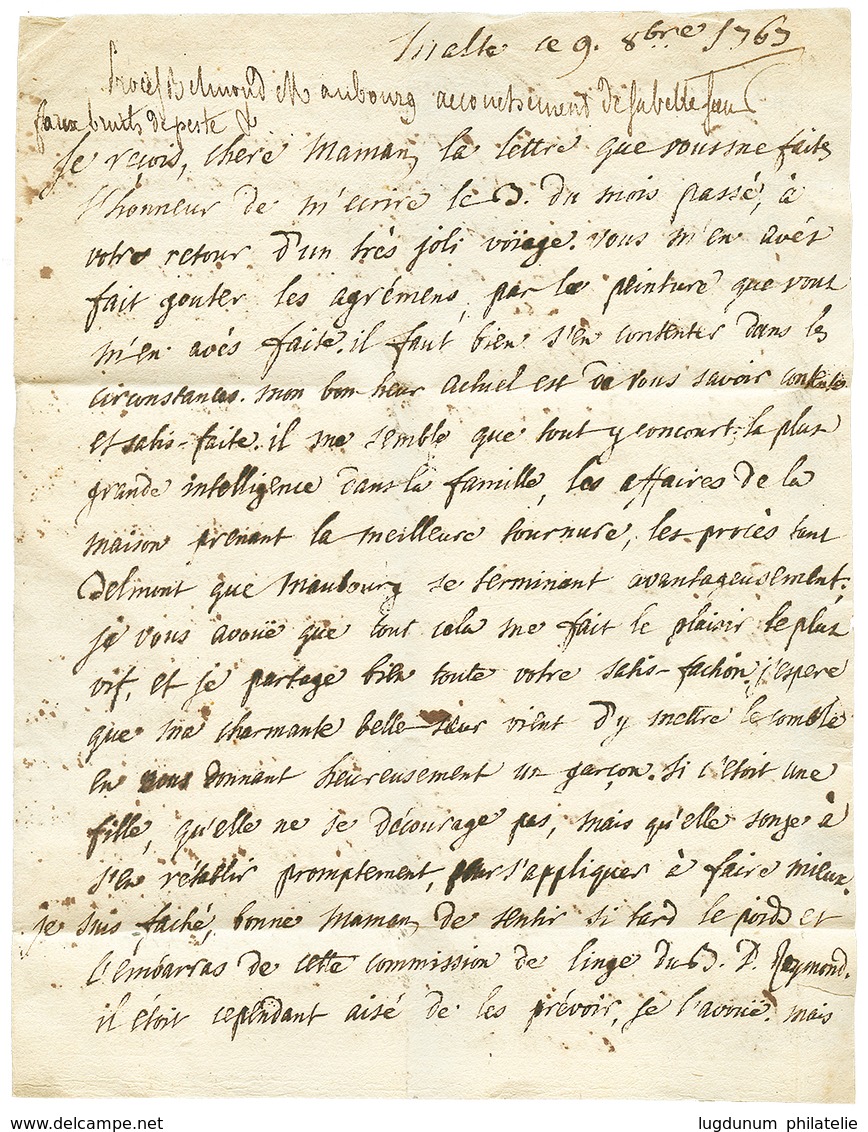 Malte ce 9. 8bre 1767
Procès Delmond et Maubourg accouchement de sa belle sœur
faux bruits de peste
Je reçois, chere Maman, la lettre que vous me faites
l'honneur de m'ecrire le 3. du mois passé, à
votre retour d'un très joli voïage. vous m'en avés
fait gouter les agrémens, par la peinture que vous
m'en avés faite. il faut bien s'en contenter dans les
circonstances. mon bon-heur actuel est de vous savoir contente
et satis-faite. il me semble que tout y concourt; la plus
grande intelligence dans la famille, les affaires de la
maison prenant la meilleure tournure, les procès tant
Delmont que Maubourg se terminant avantageusement.
je vous avoüe que tout cela me fait le plaisir le plus
vif, et je partage bien toute votre satis-faction. j'espere
que ma charmante belle-sœur vient d'y mettre le comble
en vous donnant heureusement un garçon. si c'étoit une
fille, qu'elle ne se décourage pas, mais qu'elle songe à
s'en rétablir promptement, pour s'appliquer à faire mieux.
je suis faché, bonne Maman, de sentir si tard le poids et
l'embarras de cette commission de linge du B. D. Reymond.
il étoit cependant aisé de les prévoir, je l'avoüe. mais
delcampe.net
lugdunum philatelie